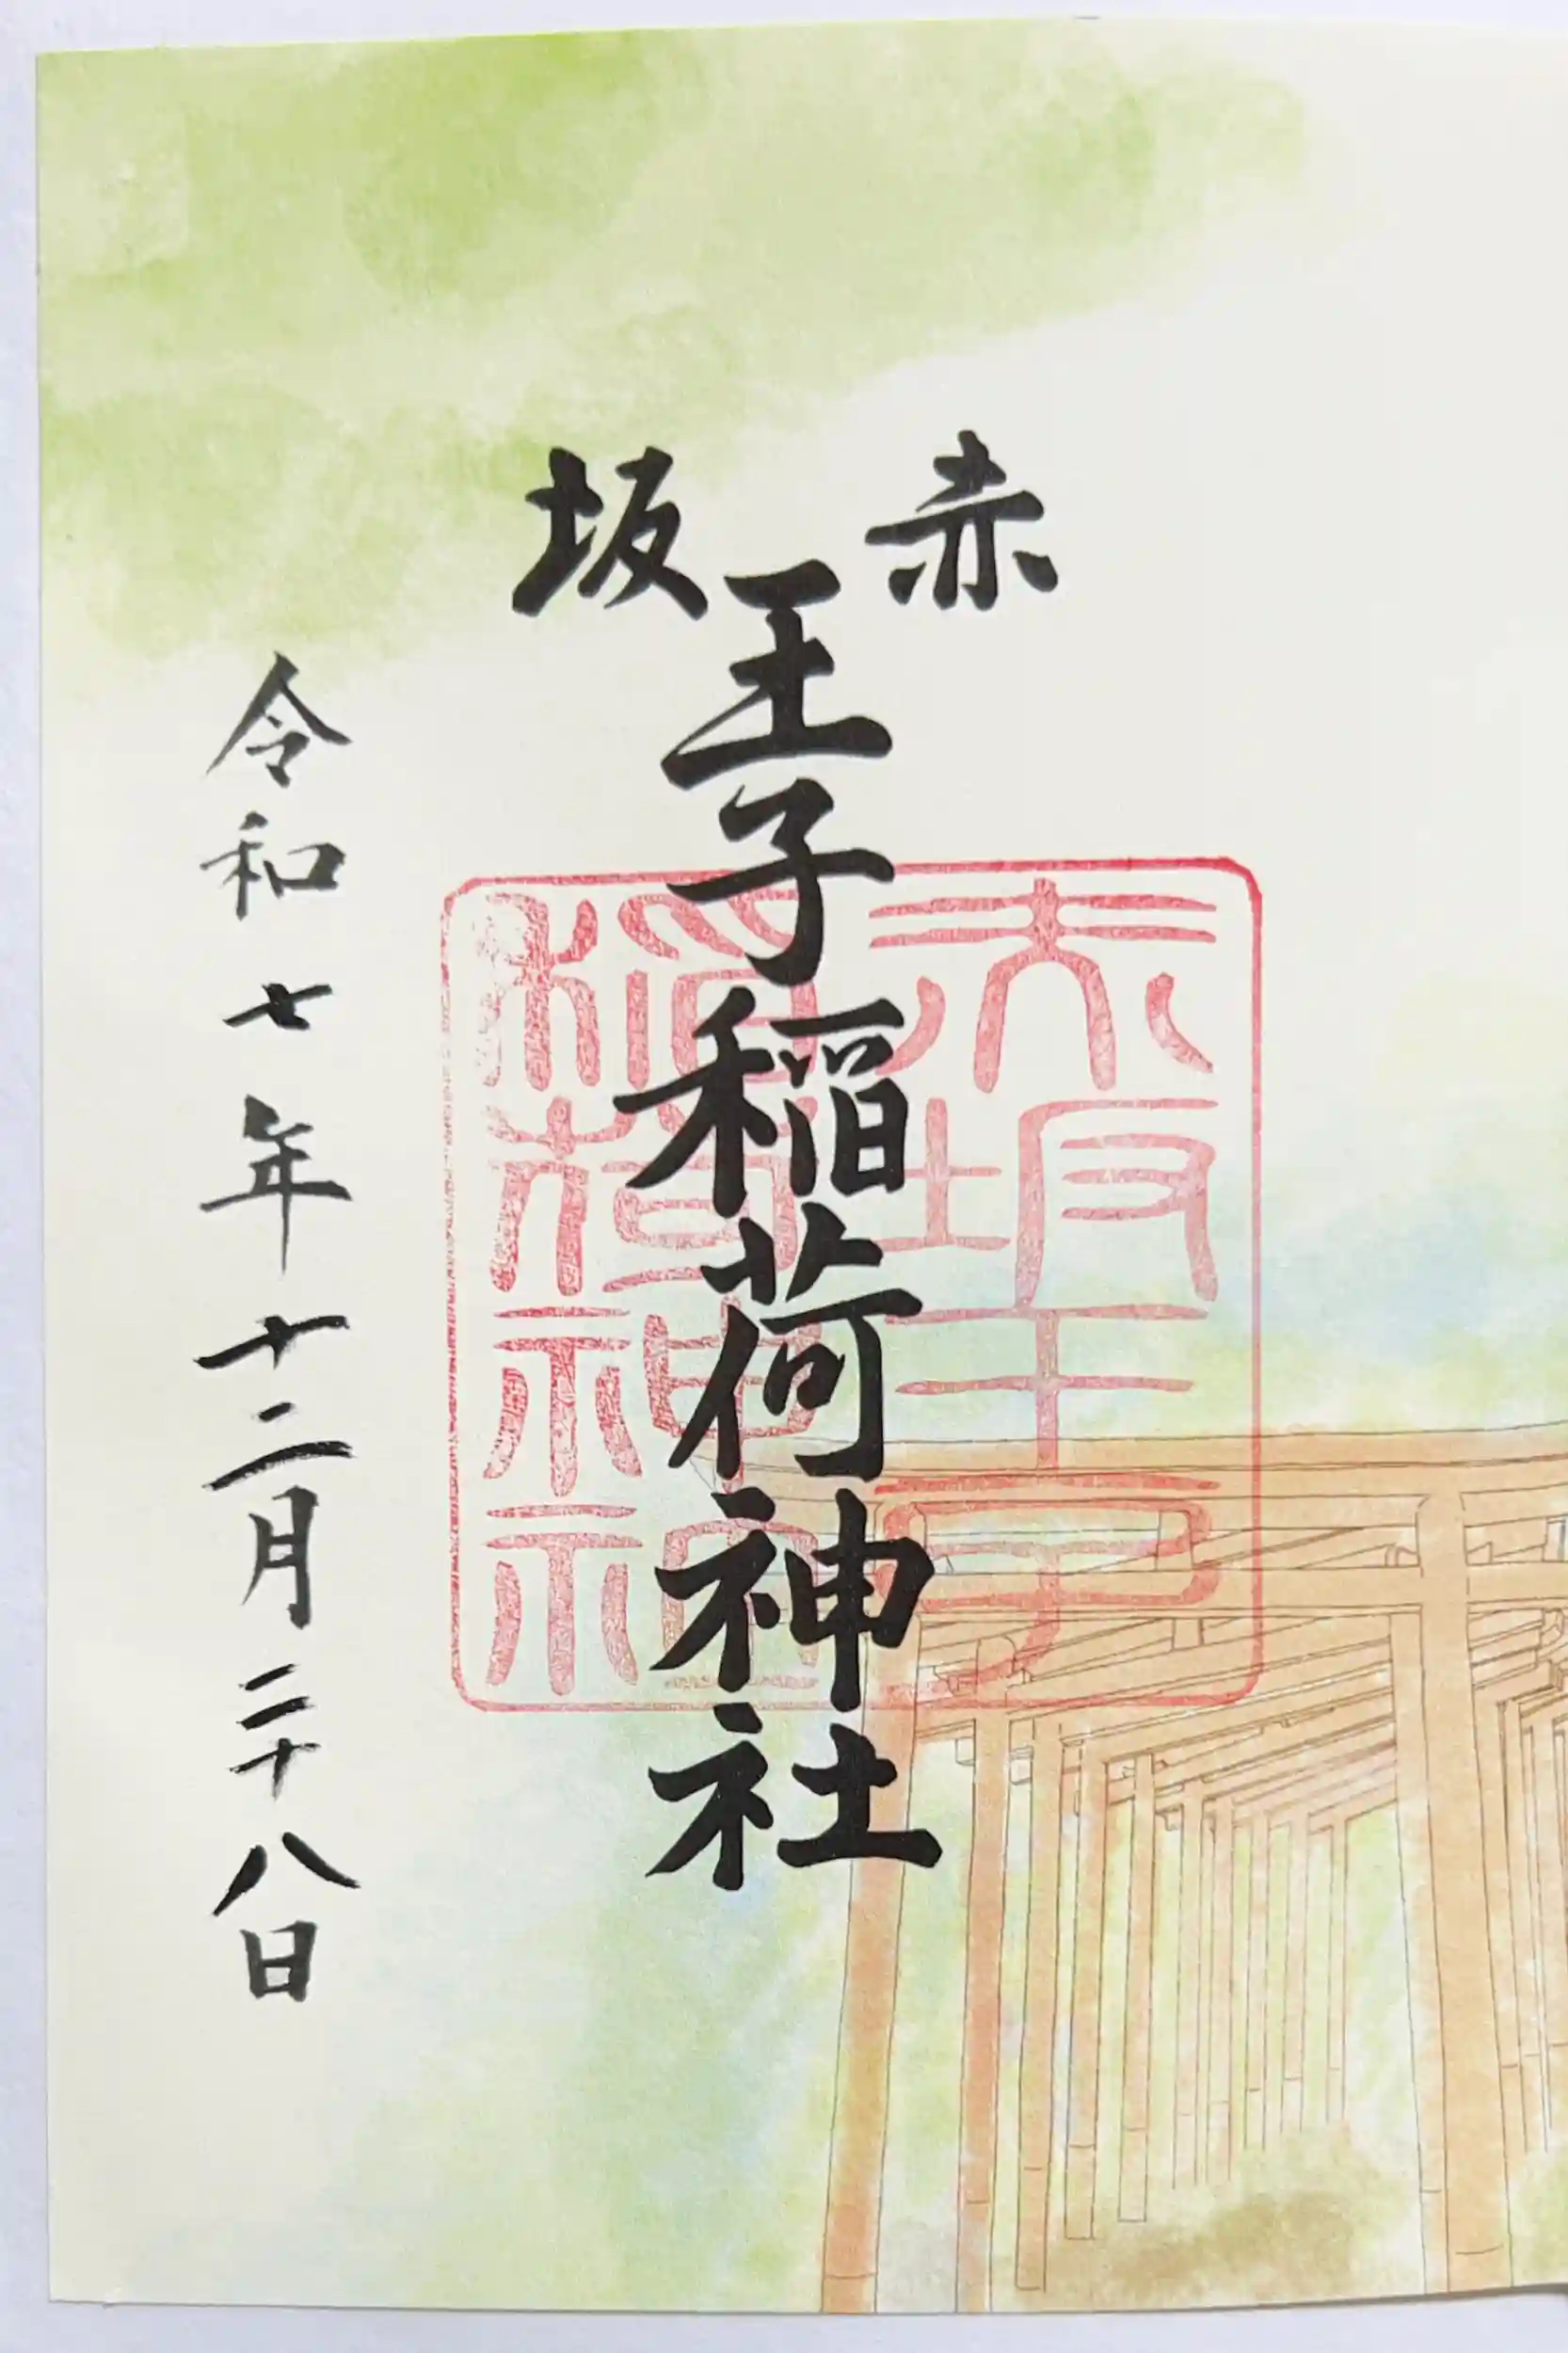 赤坂
王子稲荷神社
令和七年十二月二十八日
赤坂王子
稲荷神社